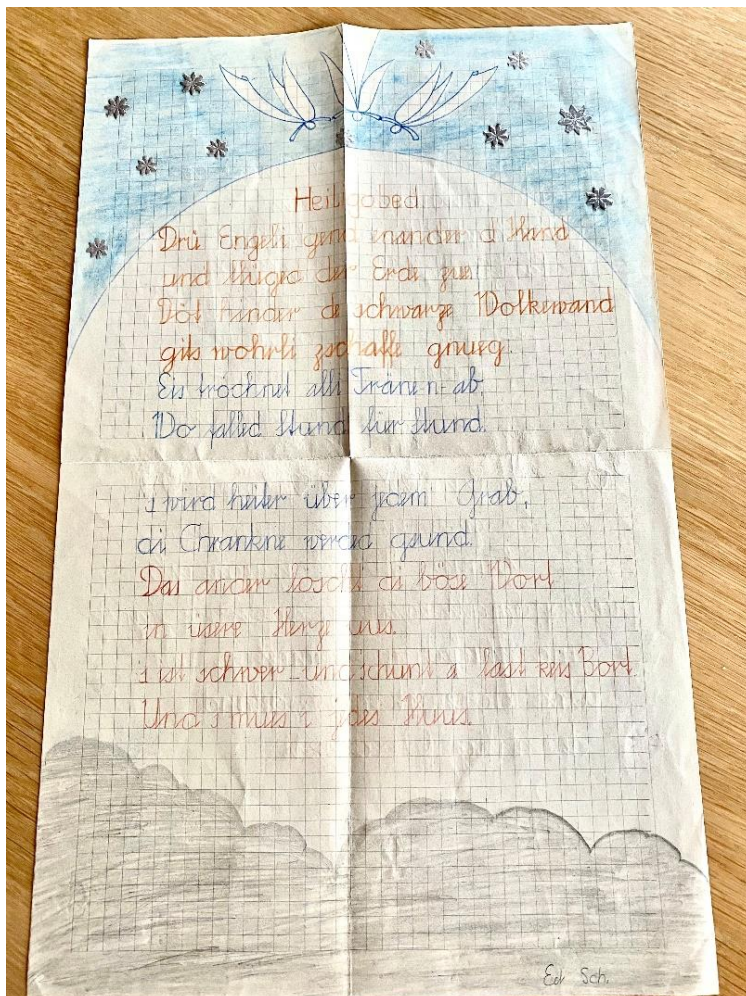 Heiligobed.
Drü Engeli gend enander d Hand
und flüged der Erde zue.
Döt hinder de schwarze Wolkewand
gits wohrli zschaffe gnueg.
Eis tröchnet alli Träne-n-ab,
Wo falled Stund für Stund.
s wird heiter über jedem Grab,
di Chrankne werded gsund.
Das ander löscht di böse Wort
in üsere Herze us.
s ist schwer und schint a fast keis Bort
Und s mues i jedes Huus.
Edi Sch.